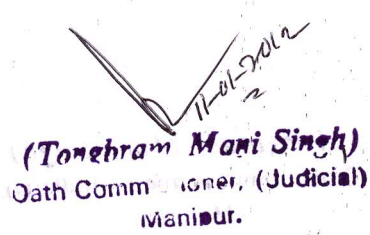 11-01-2012
(Tongbram Mani Singh)
Oath Comm ioner, (Judicial)
Manipur.